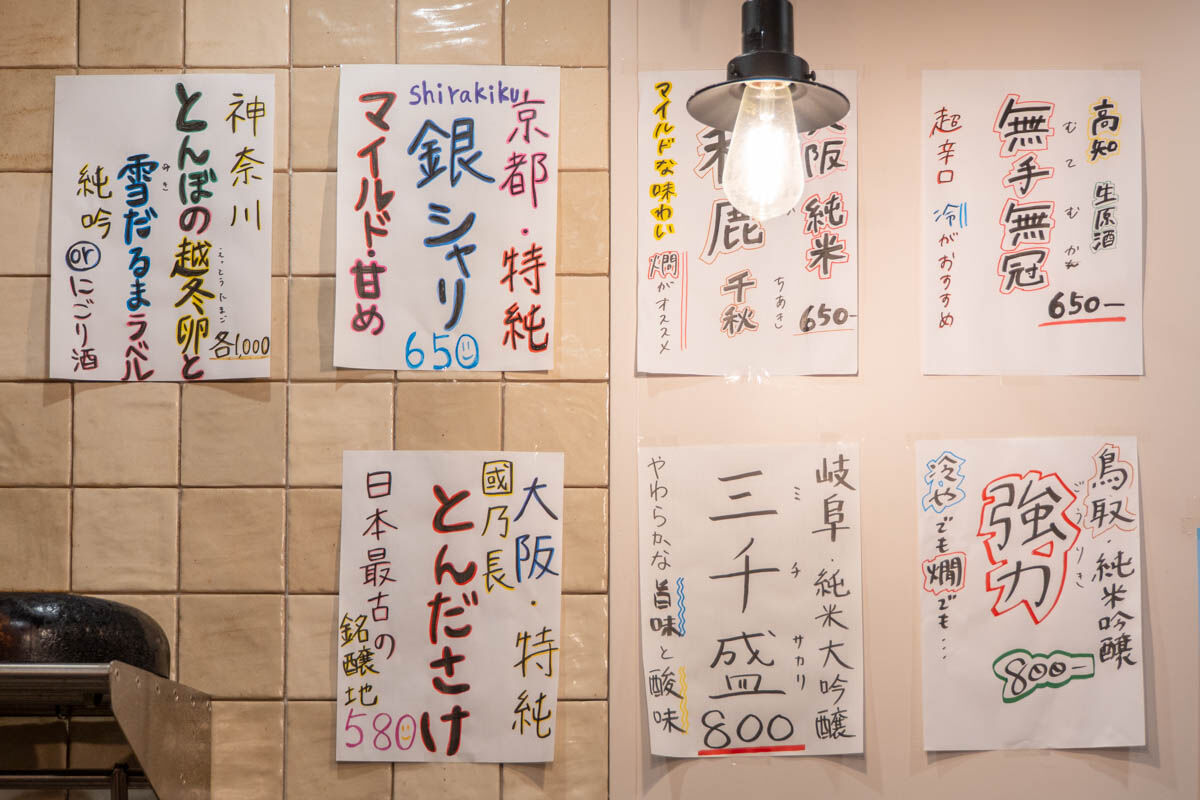 神奈川
とんぼの越冬卵と
えっとうたまご
雪だるまラベル
ゆき
純吟 or にごり酒
各1,000
京都・特純
shirakiku
銀シャリ
マイルド・甘め
650
阪 純米
鹿
千秋
ちあき
マイルドな味わい
燗がオススメ
650-
高知 生原酒
無手無冠
むてむかん
超辛口 冷がおすすめ
650-
大阪・特純
國乃長
とんださけ
日本最古の
銘醸地
580
岐阜・純米大吟醸
三千盛
ミチサカリ
やわらかな旨味と酸味
800
鳥取・純米吟醸
強力
ごうりき
冷やでも燗でも…
800-